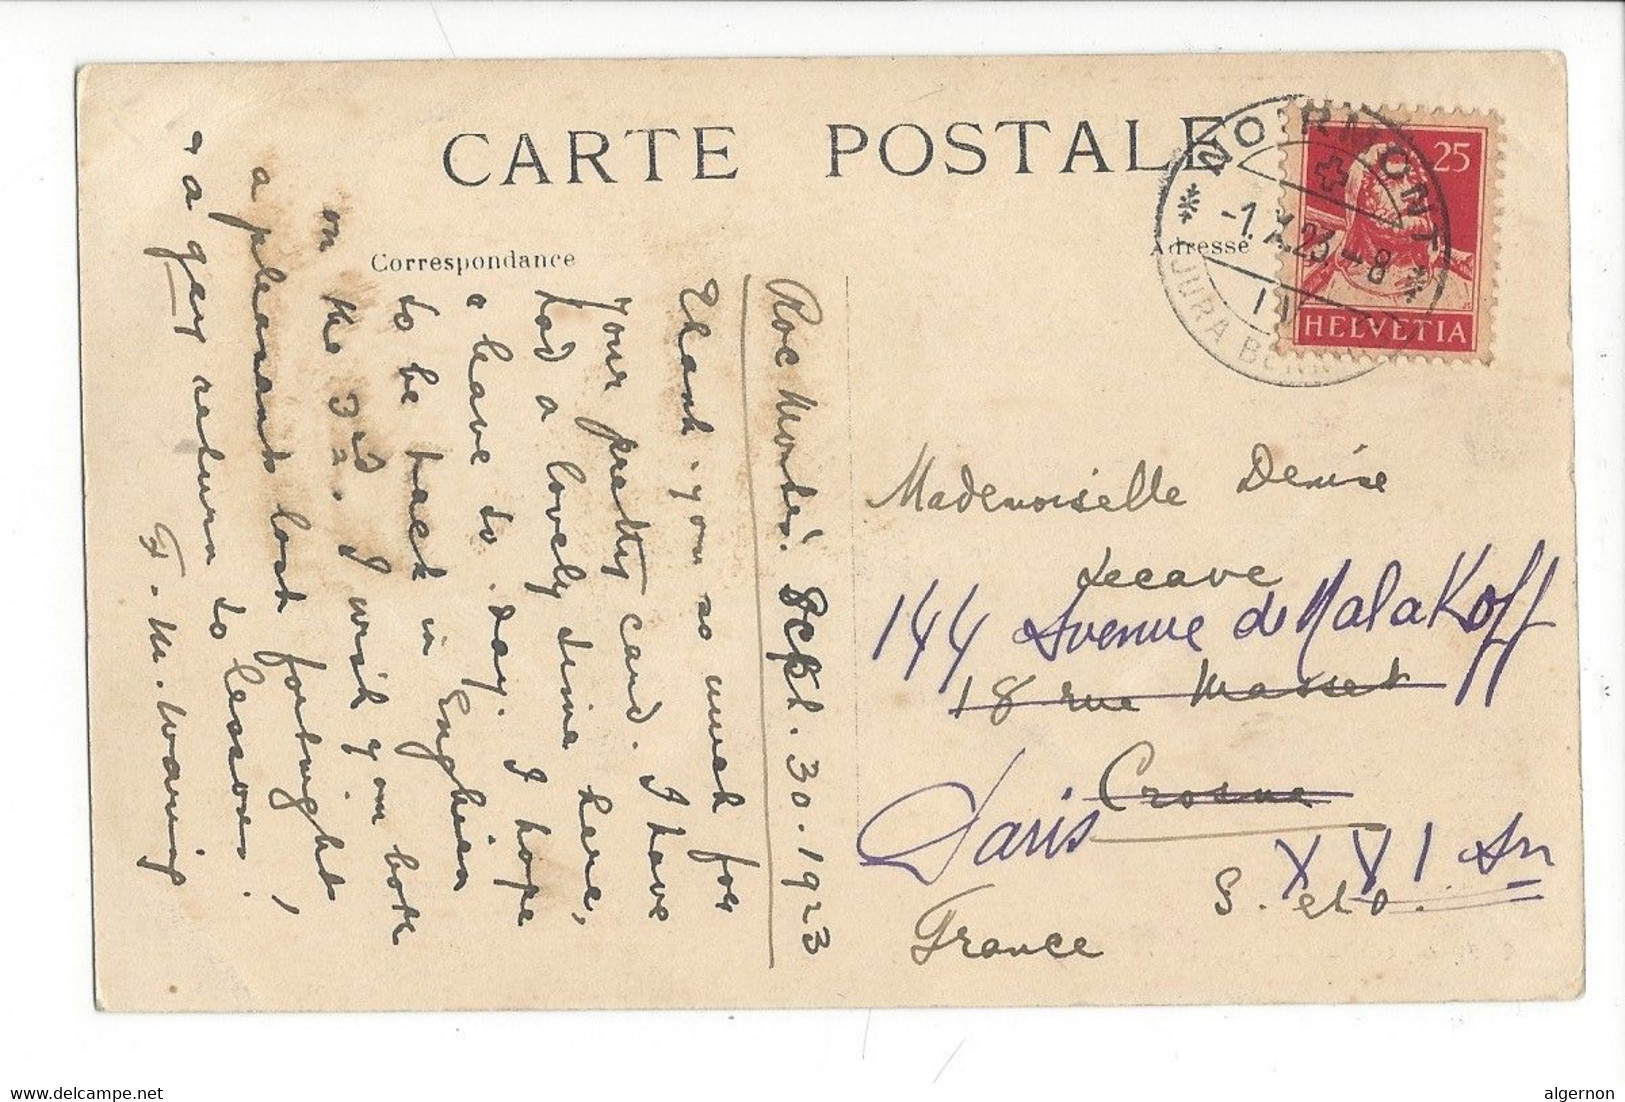 CARTE POSTALE
Correspondance
Adresse
NOIRMONT
-1.X.23.-8
JURA BERN
25
HELVETIA
Roc Montès. Sept. 30. 1923
Thank-you so much for
your pretty card. I have
had a lovely time here,
& leave to-day. I hope
to be back in Enghien
on the 3rd. I wish you both
a pleasant last fortnight,
& a gay return to lessons.
F. M. Waring
Mademoiselle Denise
Lecave
144 Avenue de Malakoff
18 rue Masset
Paris Crosne
XVI Arr
S. et O.
France
delcampe.net
algernon